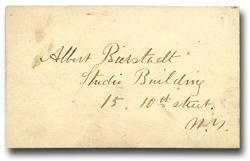 Albert Bierstadt
Studio Building
15. 10th street.
N.Y.